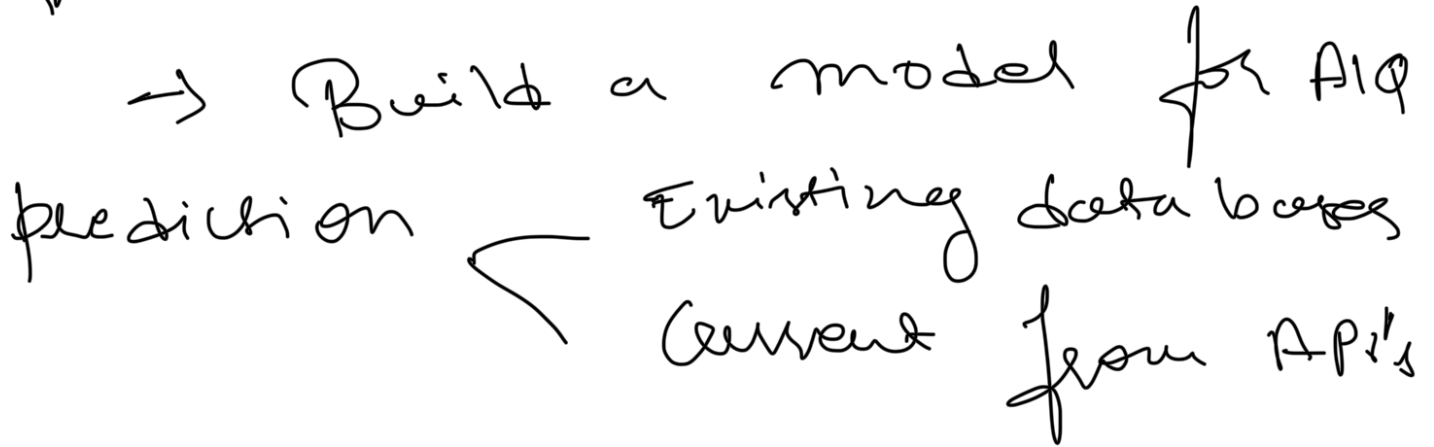 → Build a model for AIQ
prediction Existing databases
Current from API's